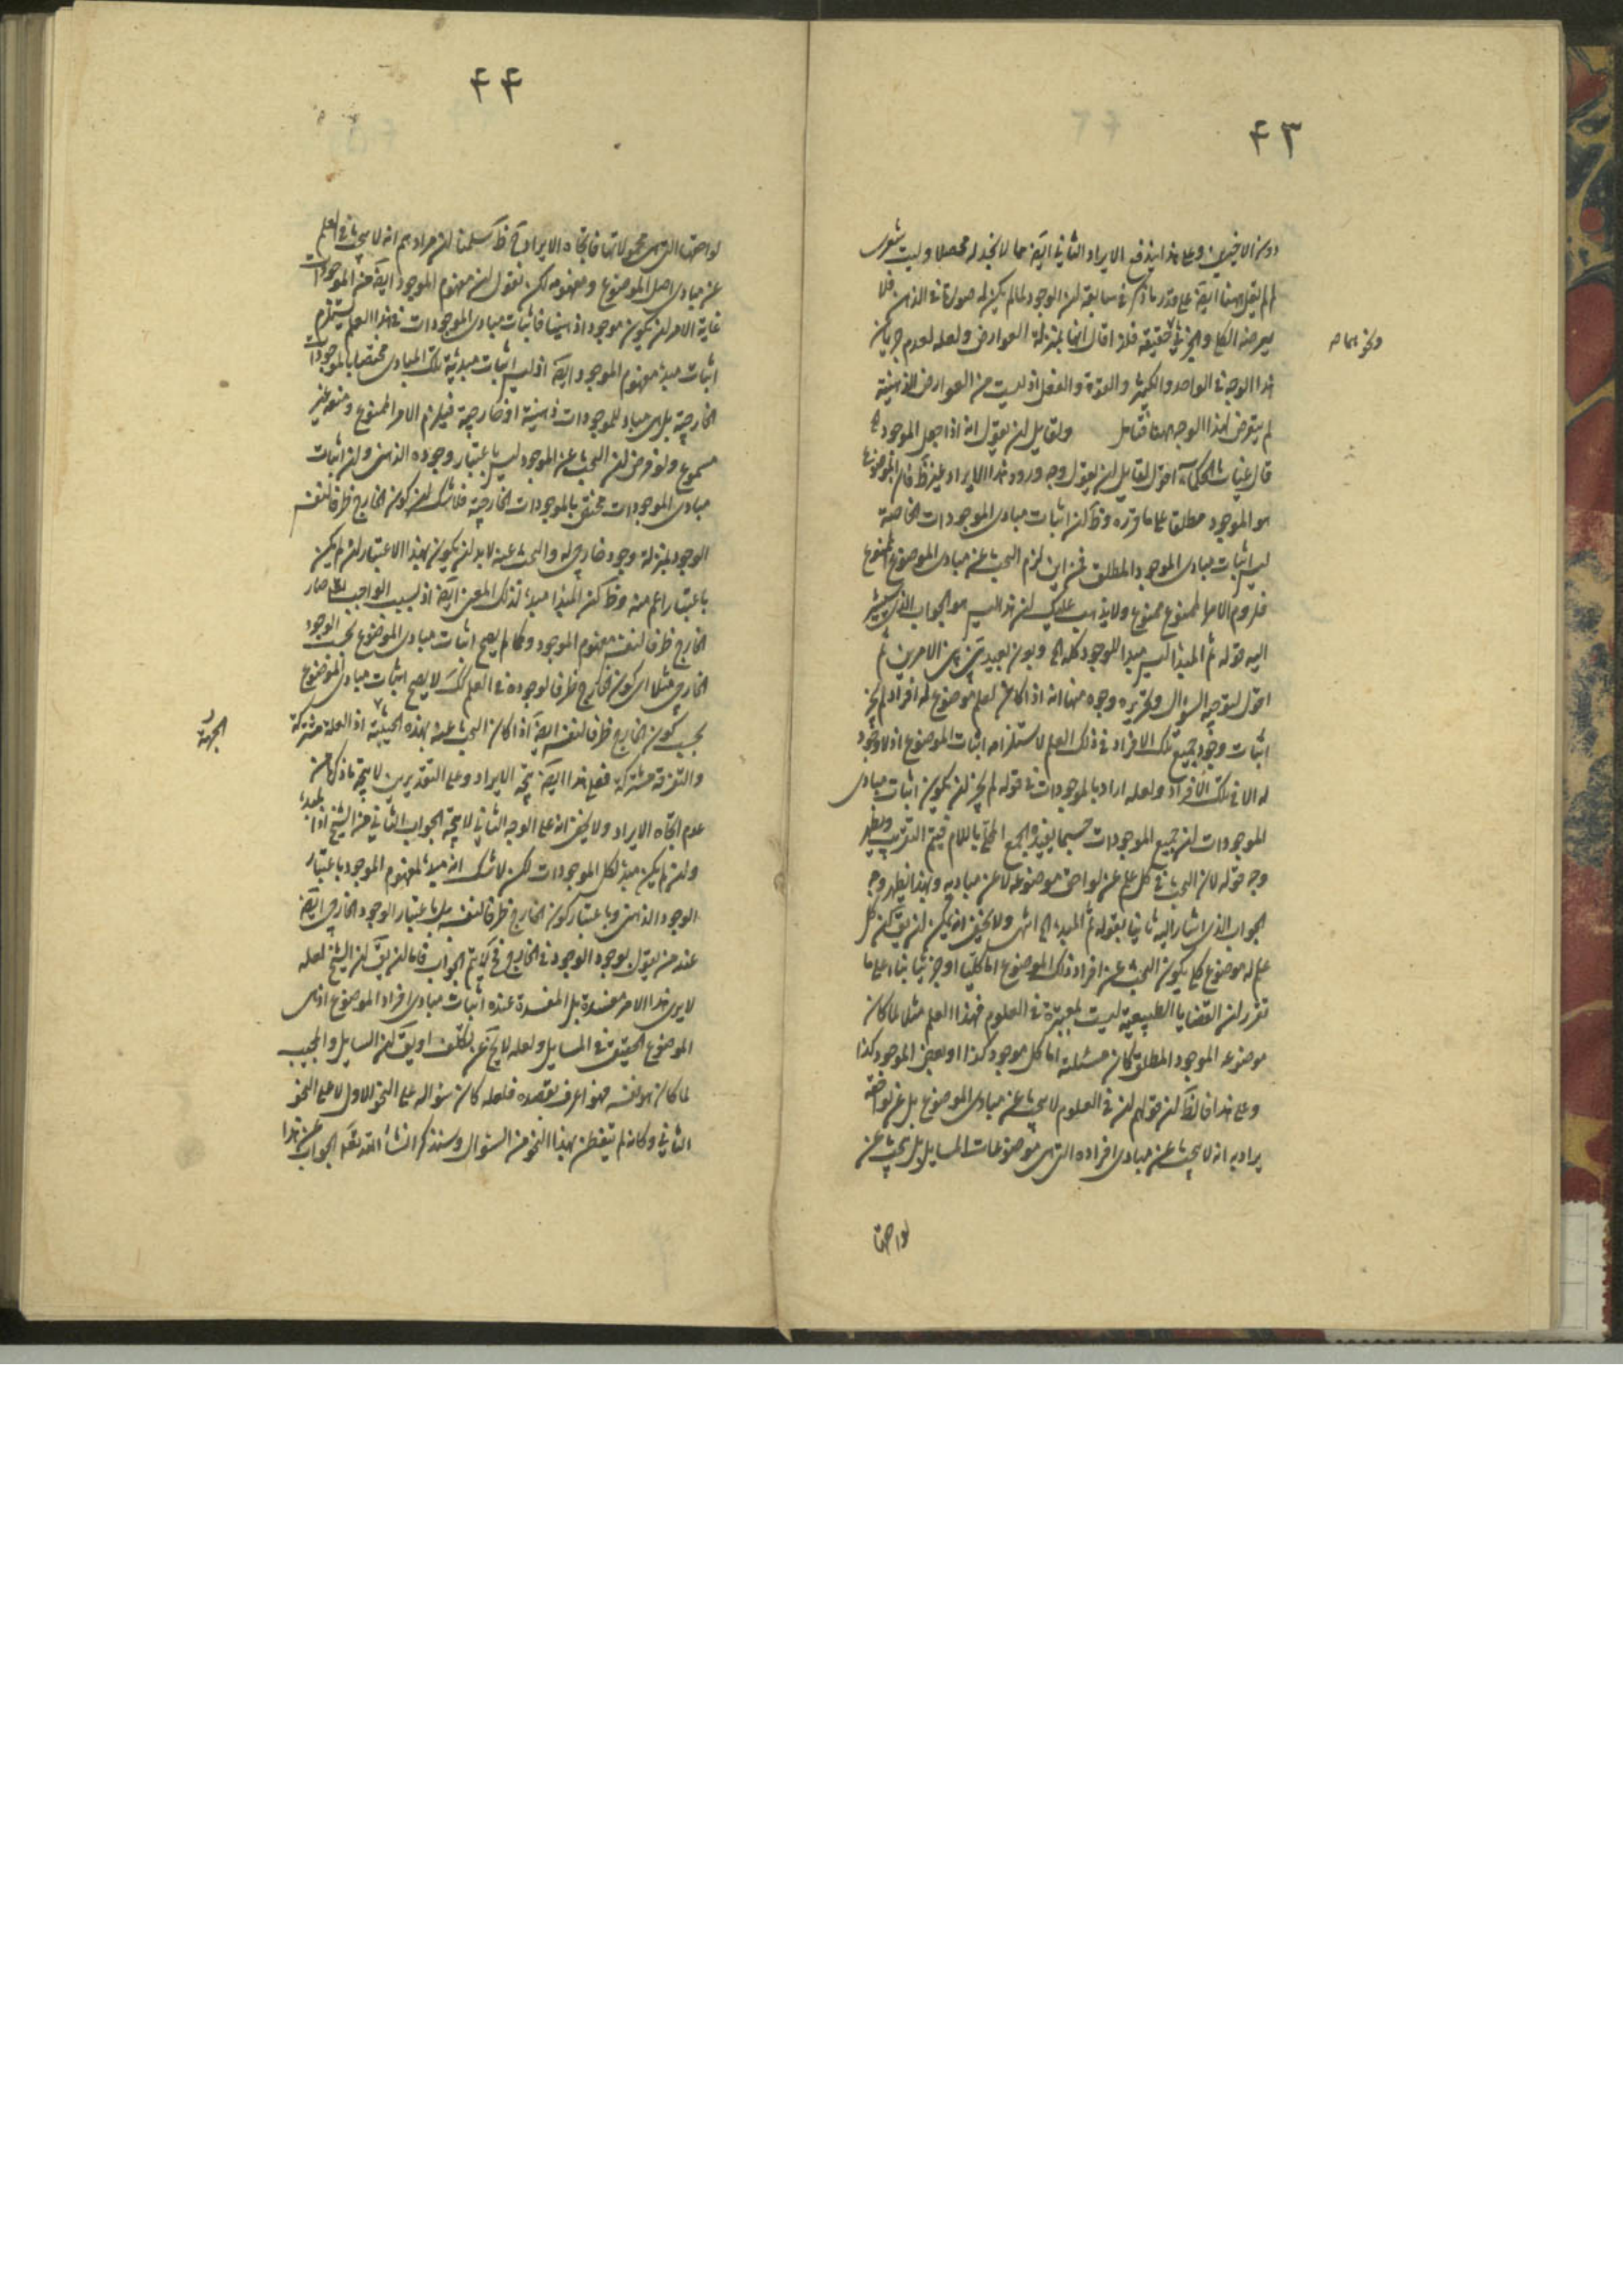 ۴۳
دون الاخيرين وعلى هذا يندفع الايراد الثاني ايضا مما لا نجد له محصلا وليت شعرى
لم لم يقل ههنا ايضا على قدر ما ذكر في سابقه ان الوجود لما لم يكن له صورة في الذهن فلا
يعرضه الكلي والجزئي حقيقة فلذا قال انها بمنزلة العوارض ولعله لعدم جريان
هذا الوجه في الواحد والكثير والقوة والفعل اذ ليست من العوارض الذهنية
لم يتعرض لهذا الوجه ههنا فتأمل ولقايل ان يقول انه اذا جعل الموجود
قال غياث الحكماء اقول لقايل ان يقول وجه ورود هذا الايراد غير ظ فان الموضوع
هو الموجود مطلقا على ما قرره وظ ان اثبات مبادى الموجودات الخاصة
ليس اثبات مبادى الموجود المطلق فمن اين لزم البحث عن مبادى الموضوع الممنوع
فلزوم الامر الممنوع ممنوع ولا يذهب عليك ان هذا ليس هو الجواب الذى يشير
اليه قوله ثم المبدا ليس مبدا للوجود كله الخ وبون بعيد بين الامرين ثم
اقول لتوجيه السؤال وتقريره وجوه منها انه اذا كان لعلم موضوع له افراد لم يجز
اثبات وجود جميع تلك الافراد في ذلك العلم لاستلزامه اثبات الموضوع اذ لا وجود
له الا في تلك الافراد ولعله اراد بالموجودات في قوله لم يجز ان يكون اثبات مبادى
الموجودات ان جميع الموجودات حسبما يفيده الجمع المحلى باللام فيتم التقريب ويظهر
وجه قوله لان البحث في كل علم عن لواحق موضوعه لا عن مباديه وبهذا يظهر وجه
الجواب الذى اشار اليه ثانيا بقوله ثم المبدء الخ انتهى ولا يخفى انه يمكن ان يق ان كل
علم له موضوع كلي يكون البحث عن افراد ذلك الموضوع اما كليا او جزئيا بناء على ما
تقرر ان القضايا الطبيعية ليست بمعتبرة في العلوم فهذا العلم مثلا لما كان
موضوعه الموجود المطلق كان مسئلته اما كل موجود كذا او بعض الموجود كذا
وعلى هذا فالظ ان قولهم ان في العلوم لا يبحث عن مبادى الموضوع بل عن لواحقه
يراد به انه لا يبحث عن مبادى افراده التى هى موضوعات المسايل بل يبحث عن
لواحقها
۴۴
لواحقها التى هى محمولاتها فاتجاه الايراد ح ظ سلمنا ان مرادهم انه لا يبحث في العلم
عن مبادى اصل الموضوع ومفهومه لكن نقول ان مفهوم الموجود ايضا من الموجودات
غاية الامر ان يكون موجودا ذهنيا فاثبات مبادى الموجودات في هذا العلم يستلزم
اثبات مبدء مفهوم الموجود ايضا اذ ليس اثبات مبدئية تلك المبادى مختصا بالموجودات
الخارجية بل هى مباد للموجودات ذهنية او خارجية فيلزم الامر الممنوع ومنعه غير
مسموع ولو فرض ان البحث عن الموجود ليس باعتبار وجوده الذهنى وان اثبات
مبادى الموجودات مختص بالموجودات الخارجية فلا شك ان كون الخارج ظرفا لنفسه
الوجود بمنزلة وجود خارجى له والبحث عنه لا بد ان يكون بهذا الاعتبار ان لم يكن
باعتبار اعم منه وظ كون المبدا مبدء لذلك المعنى ايضا اذ بسبب الواجب تعالى صار
الخارج ظرفا لنفس مفهوم الموجود وكما لم يصح اثبات مبادى الموضوع بحسب الوجود
الخارجى مثلا اى كون الخارج ظرفا لوجوده في العلم كك لا يصح اثبات مبادى الموضوع
بحسب كون الخارج ظرفا لنفسه ايضا اذا كان البحث عنه بهذه الحيثية اذ العلة مشتركة
والتفرقة مشتركة فعلى هذا ايضا يتجه الايراد وعلى التقديرين لا يتجه ما ذكرنا من
عدم اتجاه الايراد ولا يخفى انه على الوجه الثاني لا يتجه الجواب الثاني من الشيخ اذ المبدء
وان لم يكن مبدء لكل الموجودات لكن لا شك انه مبدء لمفهوم الموجود باعتبار
الوجود الذهنى وباعتبار كون الخارج ظرفا لنفسه بل باعتبار الوجود الخارجى ايضا
عند من يقول بوجود الوجود في الخارج فح لا يتم الجواب فاما ان يق ان الشيخ لعله
لا يرى هذا الامر مفسدة بل المفسدة عنده اثبات مبادى افراد الموضوع اذ هى
الموضوع الحقيقى في المسايل ولعله لا يخ عن تكلف او يق ان السايل والمجيب
لما كان هو نفسه فهو اعرف بقصده فلعله كان سؤاله على النحو الاول لا على النحو
الثاني وكانه لم يتفطن بهذا النحو من السئوال وسنذكر انشاء الله تعالى الجواب عن هذا